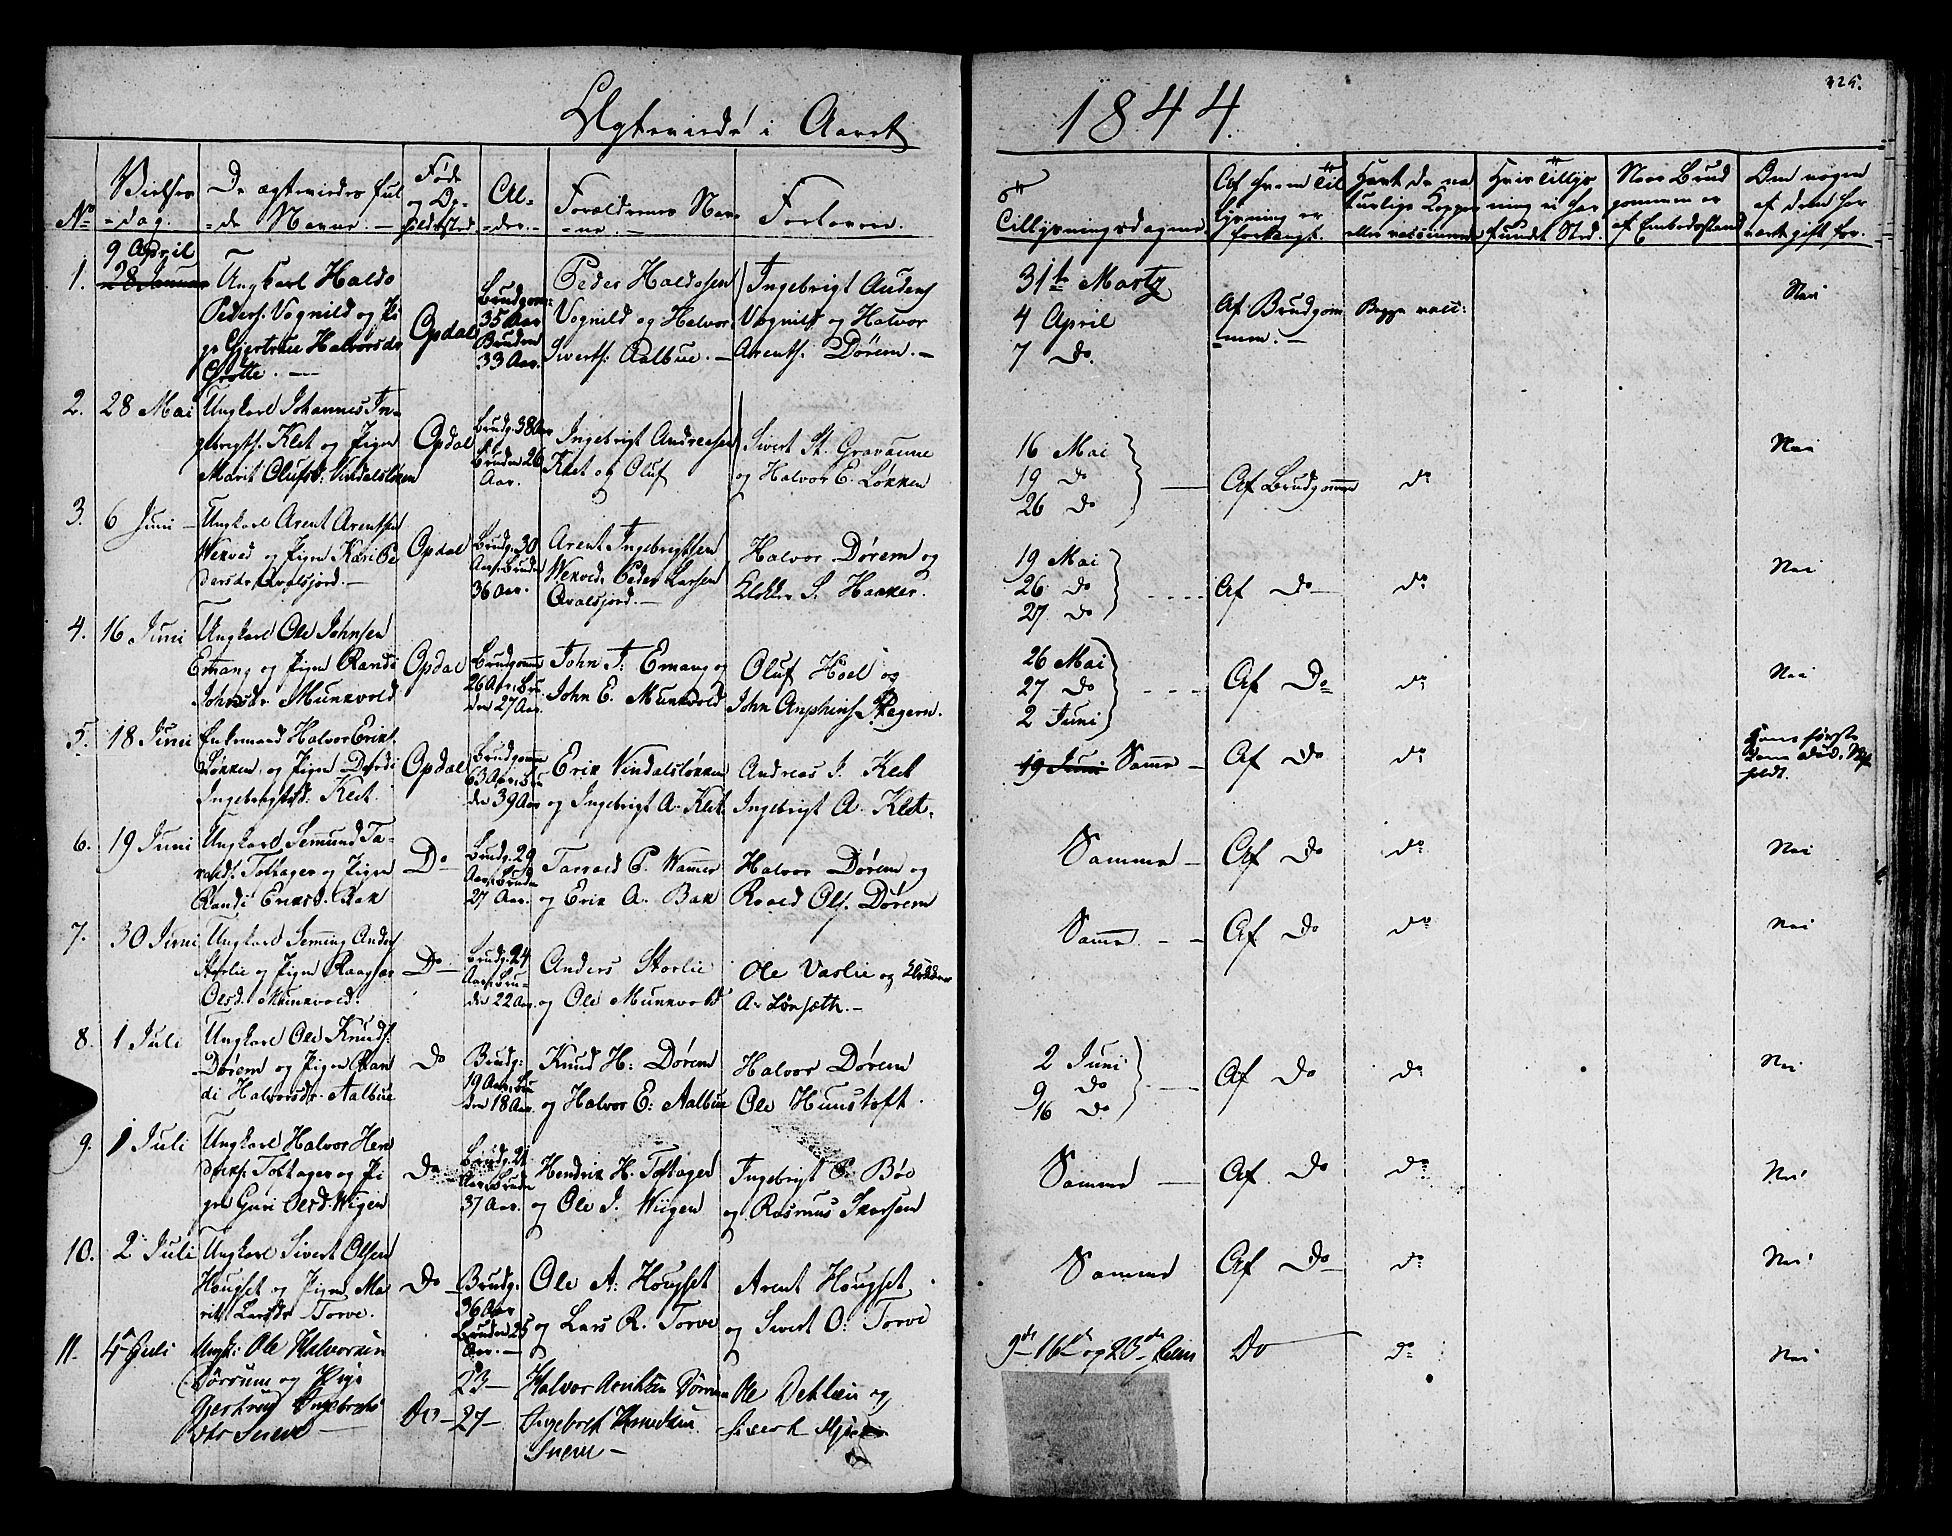 Ægteviede i Aaret 1844.
325.
No
Vielses
-dag.
De ægteviedes ful
-de Navne.
Føde
og Op-
holdssted.
Al-
-der.
Forældrenes Nav-
-ne.
Forlovere.
Tillysningsdagene.
Af hvem Til
lysning er
forlangt.
Havt de na
turlige Kopper
eller vaccinerede
Hvis Tillys
ning ei har
fundet Sted.
Naar Brud
gommen er
af Embedsstand
Om nogen
af dem har
været gift før.
1.
9 April
28 Januar
Ungkarl Haldo
Peders: Vognild og Pi
ge Gjertrue Halvorsdr
Grøtte.
Opdal
Brudgom:
35 Aar
Bruden
33 Aar.
Peder Haldosen
Vognild og Halvor
Siverts: Aalbue.
Ingebrigt Anders
Vognild og Halvor
Arents: Dørem.
31te Martz
4 April
7 Do
Af Brudgom
men.
Begge vacc:
Nei
2.
28 Mai
Ungkarl Johannes In-
gebrigts: Klet og Pigen
Marit Olufsd: Vindalsløkken
Opdal
Brudg. 38 Aar
Bruden 26
Aar.
Ingebrigt Andreasen
Klet og Oluf
Sivert St. Gravaune
og Halvor E. Løkken
16 Mai
19 Do
26 Do
Af Brudgommen
do
Nei
3.
6 Juni
Ungkarl Arent Arentsen
Wekved og Pigen Kari Pe
dersdr Qvalsjord.
Opdal
Brudg. 30
Aar. Bruden
36 Aar.
Arent Ingebrigtsen
Wekved. Peder Larsen
Qvalsjord.
Halvor Dørem og
Klokker S. Haaker.
19 Mai
26 Do
27 Do
Af Do
do
Nei
4.
16 Juni
Ungkarl Ole Johnsen
Emang og Pigen Randi
Johnsdr. Munkvold
Opdal
Brudgomm
26 Aar. Bru
den 27 Aar.
John J: Emang og
John E. Munkvold
Oluf Hoel og
John
26 Mai
27 Do
2 Juni
Af Do
do
Nei
5.
18 Juni
Enkemand Halvor Eriks:
Løkken, og Pigen Dordi
Ingebrigtsd: Klet.
Opdal
Brudgomm
63 Aar. Bru
den 39 Aar
Erik Vindalsløkken
og Ingebrigt A. Klet.
Andreas J. Klet
Ingebrigt A. Klet.
19 Juni Samme
Af Do
do
første
6.
19 Juni
Ungkarl Semmund Ta-
ralds: Toftager og Pigen
Randi Eriksd. Bak
Do
Brudg. 29
Aar. Bruden
27 Aar.
Tarrald P. Wammer
og Erik A. Bak
Halvor Dørem og
Roald Ols. Dørem
Samme
Af Do
do
Nei
7.
30 Juni
Ungkarl Semming Anders
Storlie og Pigen Ragnhild
Olsd. Munkvold.
Do
Brudg. 24
Aar. Bru-
den 22 Aar.
Anders Storlie
og Ole Munkvold
Ole Vaslie og Klokker
A. Lønsæth.
Samme
Af Do
do
Nei
8.
1 Juli
Ungkarl Ole Knuds:
Dørem og Pigen Ran
di Halvorsdr. Aalbue
Do
Brudg:
19 Aar. Bru
den 18 Aar.
Knud H: Dørem
og Halvor E: Aalbue
Halvor Dørem
Ole Hunstoft.
2 Juni
9 Do
16 Do
Af Do
do
Nei
9.
1 Juli
Ungkarl Halvor Hen
driks: Toftager og Pi
gen Guri Olsd. Wiigen
Do
Brudg. 21
Aar. Bruden
37 Aar.
Hendrik H. Toftager
og Ole J. Wiigen
Ingebrigt E. Böe
og Rasmus Skorsem
Samme
Af Do
do
Nei
10.
2 Juli
Ungkarl Sivert Olsen
Hougset og Pigen Ma
rit Larsdr Torve.
Do
Brudg:
36 Aar
Bruden 25
Aar.
Ole A: Hougset
og Lars R. Torve
Arent Hougset
og Sivert O: Torve
Samme
Af Do
do
Nei
11.
4de Juli
Ungk: Ole Halvorsen
Dørrum og Pige
Gertrud Ingebrigts
dtr Sneve
Do
23
27
Halvor Arntsen Dørrum
Ingebret Knudsen
Sneve
Ole Dehlien og
Sivert
9de 16de og 23de Juni
Do
do
Nei